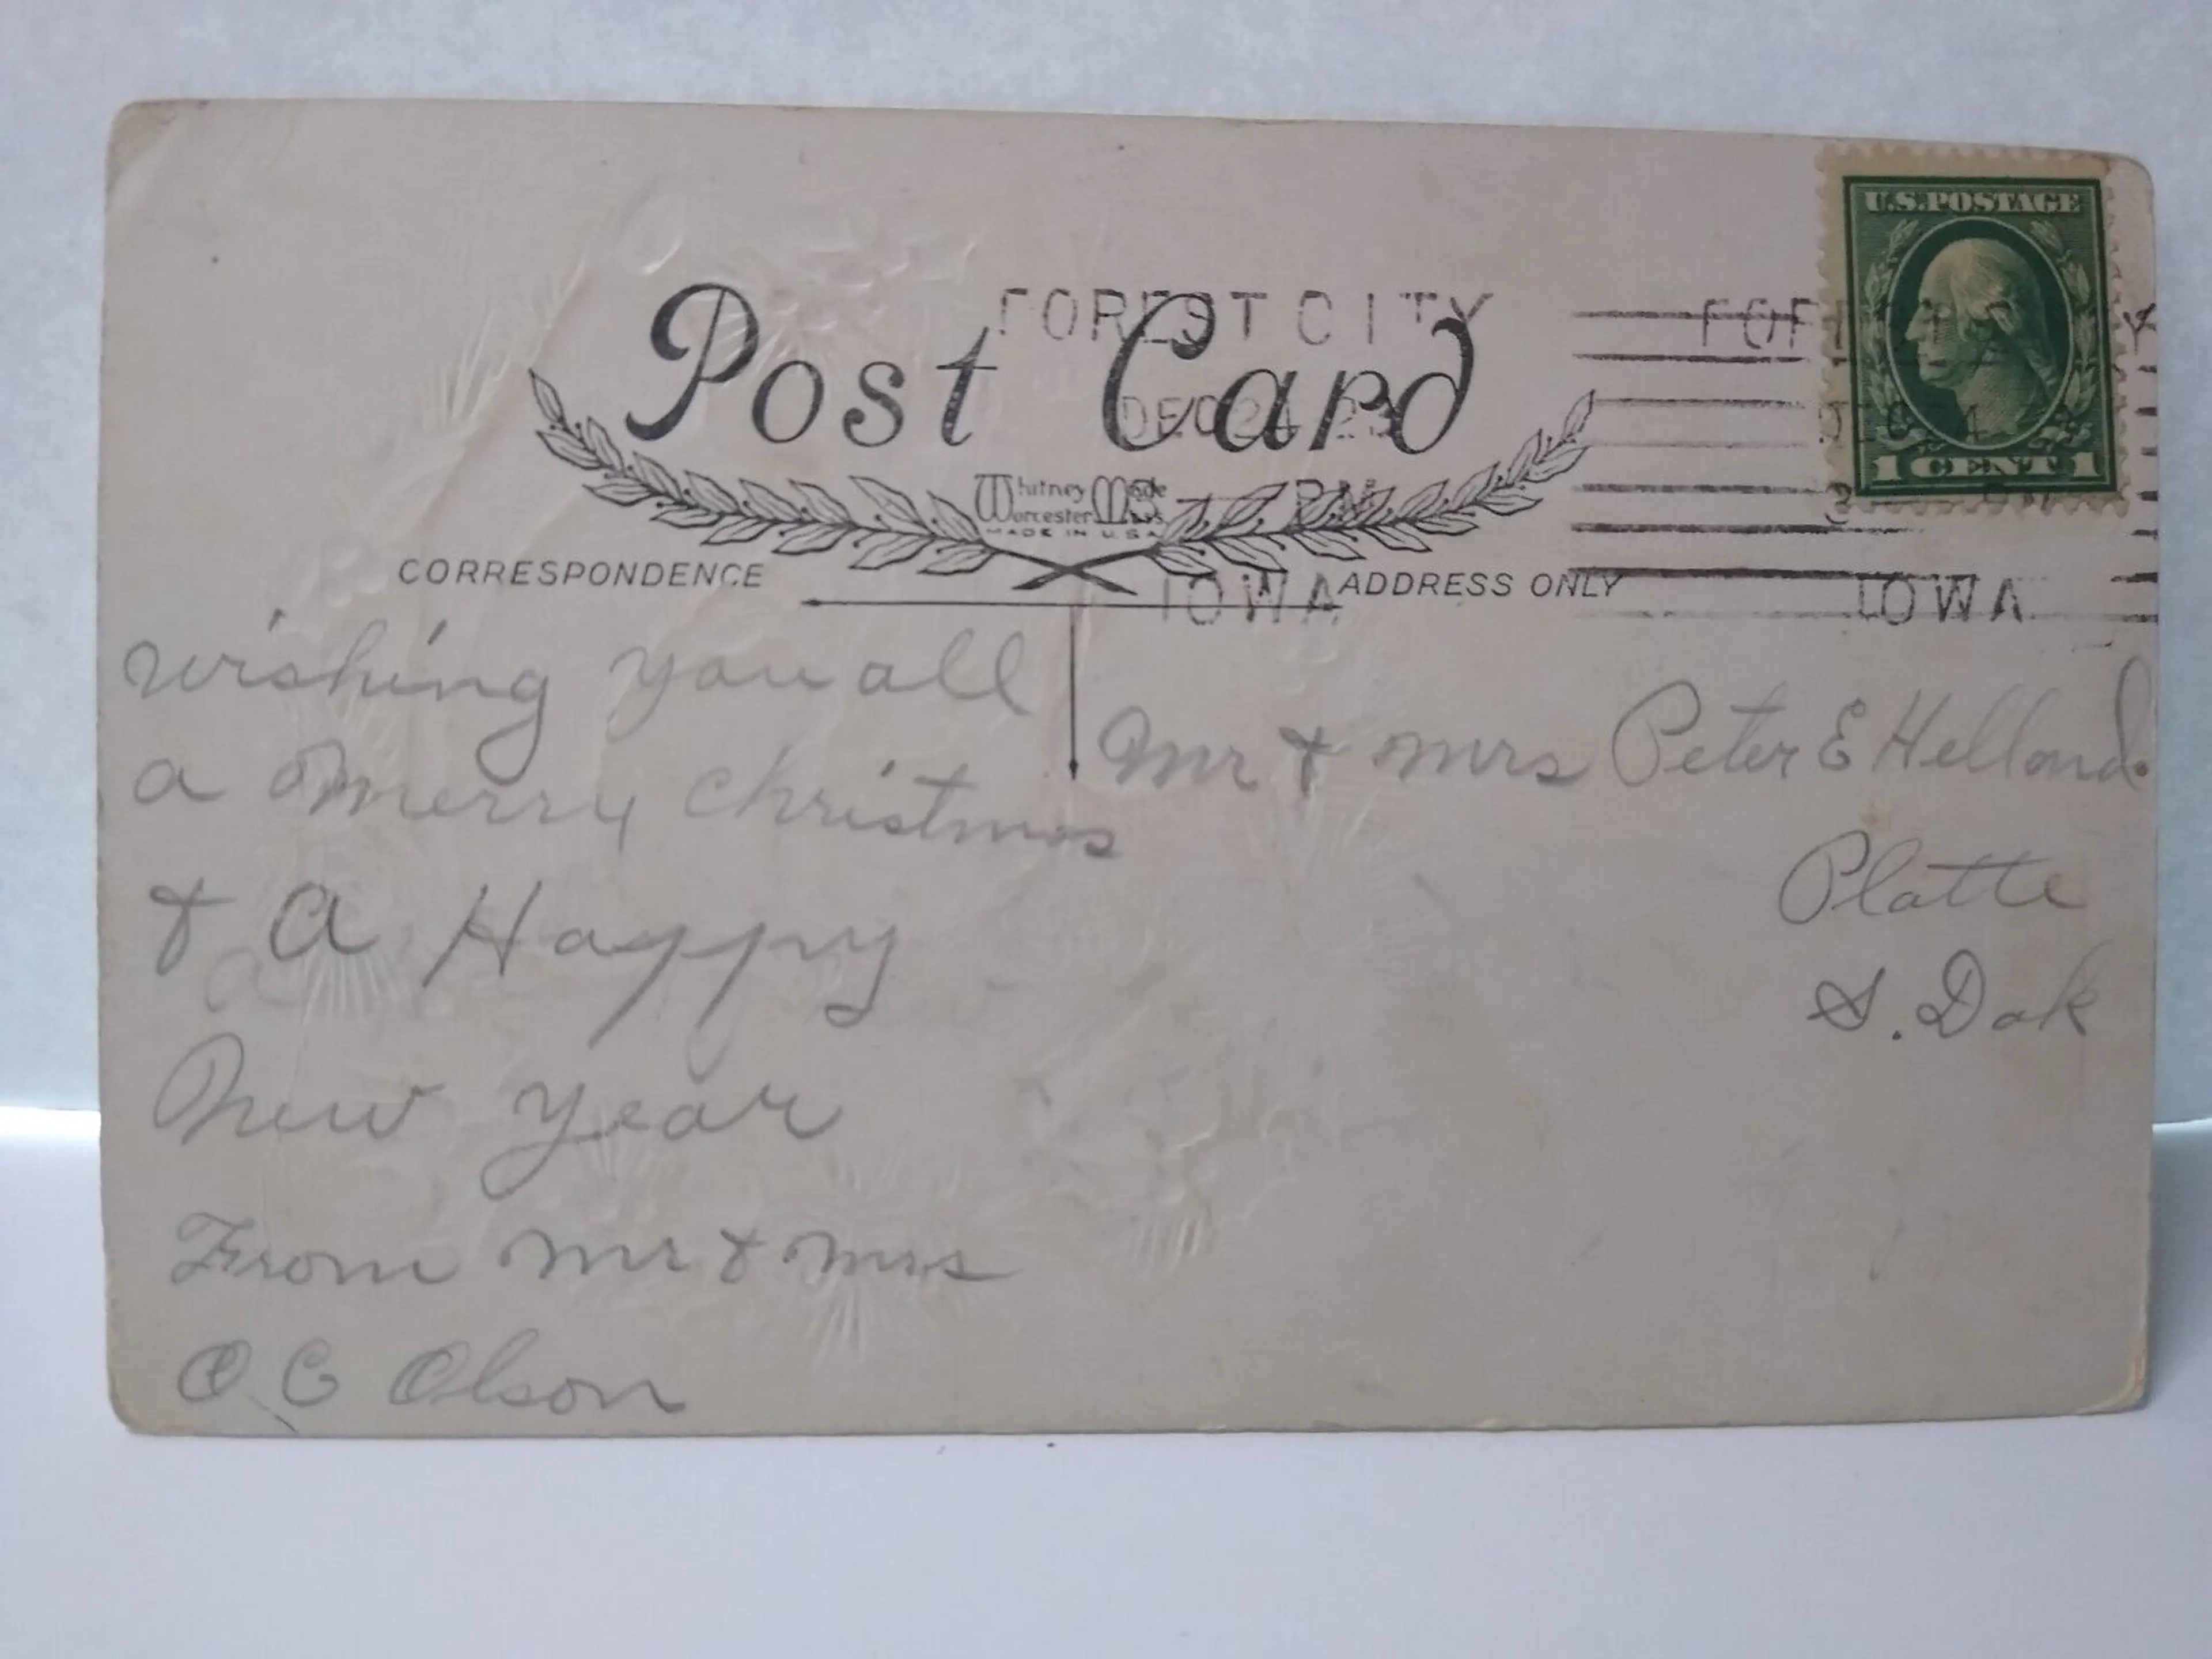 U.S.POSTAGE
1 CENT 1
FOREST CITY
DEC 24 23
PM
IOWA
IOWA
Post Card
Whitney Made
Worcester Mass
MADE IN U.S.A
CORRESPONDENCE
ADDRESS ONLY
wishing you all
a merry christmas
& a Happy
New year
From mr & mrs
O C Olson
Mr & mrs Peter E Helland
Platte
S. Dak